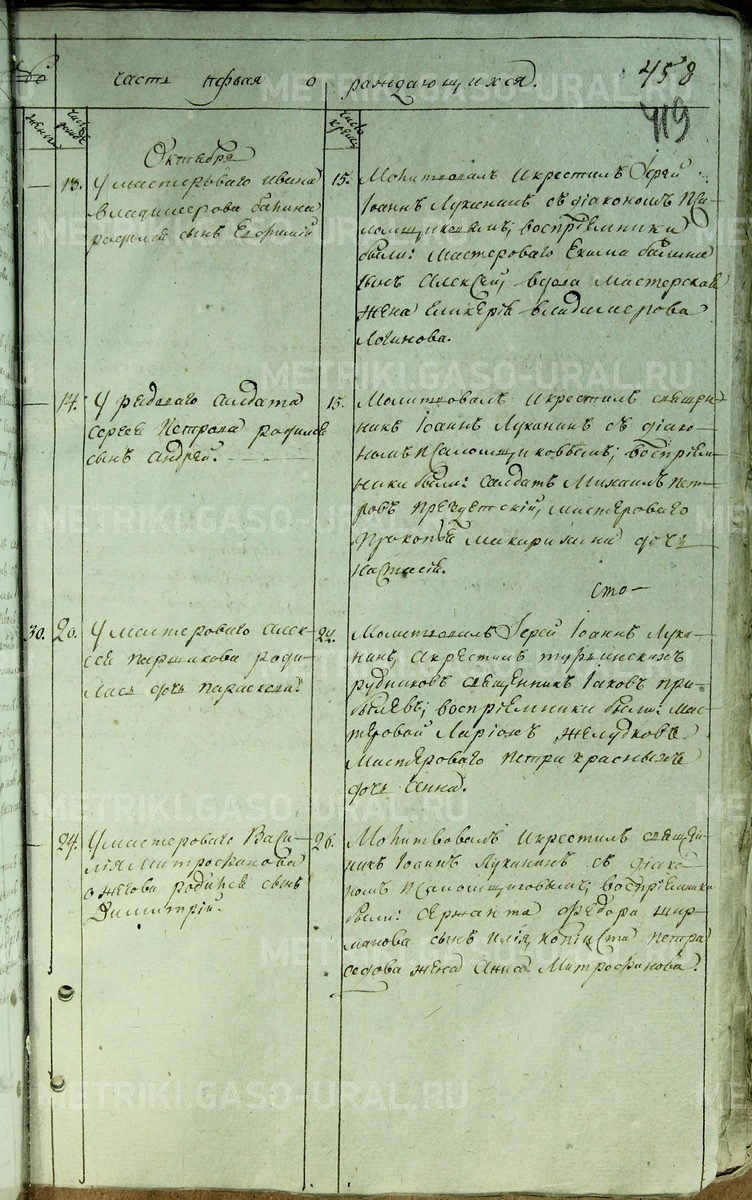 часть первая о раждающихся. 458
419
число рожде
число крещ
Октября
13. У мастероваго Ивана
Владимерова
родился сынъ Евфимий
15. Молитвовалъ и крестилъ Iерей
Iоаннъ Луканинъ съ дiакономъ
воспрiемники
были: мастероваго Екима
сынъ Алексей, вдова мастерская
жена Гликерiя Владимерова
Логинова.
14. У рядоваго салдата
Сергея Петрова родился
сынъ Андрей.
15. Молитвовалъ и крестилъ священ-
никъ Iоаннъ Луканинъ съ дiако-
номъ Псаломщиковымъ; воспрiем-
ники были: салдатъ Михаилъ Пет-
ровъ мастероваго
Прокопья Макарихина дочь
Настасiя.
сто-
30. 20. У мастероваго Алек-
сея Паршукова роди-
лась дочь Параскева.
24. Молитвовалъ Iерей Iоаннъ Лука-
нинъ, а крестилъ Турьинскихъ
рудниковъ священникъ Iаковъ При-
былевъ; воспрiемники были: мас-
теровой Ларiонъ Желудковъ
мастероваго Петра Красныхъ
дочь Анна.
24. У мастероваго Васи-
лiя Митрофанова
Ожегова родился сынъ
Димитрiй.
26. Молитвовалъ и крестилъ священ-
никъ Iоаннъ Луканинъ съ дiако-
номъ Псаломщиковымъ; воспрiемники
были: сержанта Федора Шир-
манова сынъ Илiя, копiиста Петра
Седова жена Анна Митрофанова.
METRIKI.GASO-URAL.RU